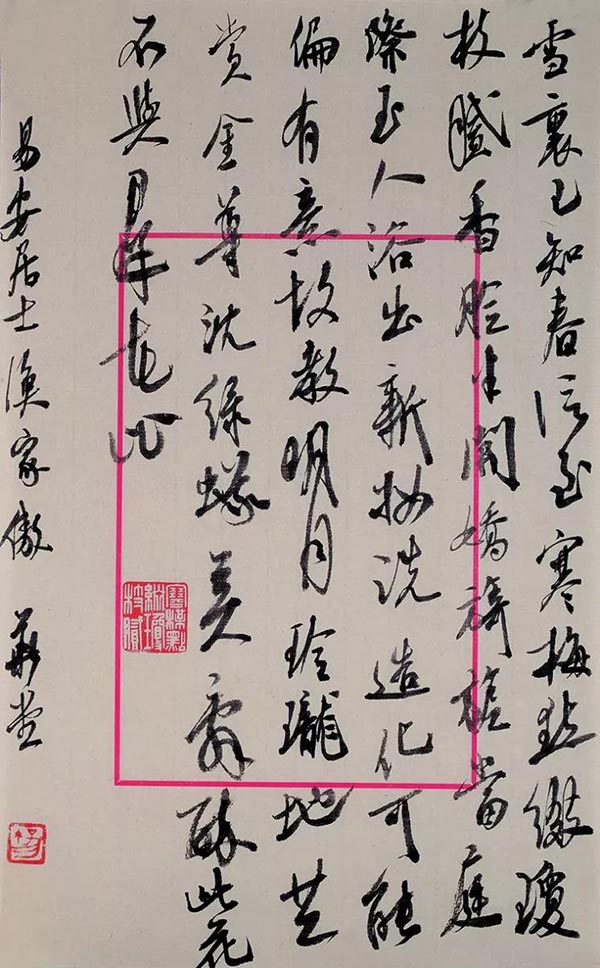 雪裏已知春信至寒梅點綴瓊
枝膩香臉半開嬌旖旎當庭
際玉人浴出新妝洗造化可能
偏有意故教明月玲瓏地共
賞金尊沈綠蟻莫辭醉此花
不與羣花比
寒梅點
綴瓊
枝膩
易安居士漁家傲